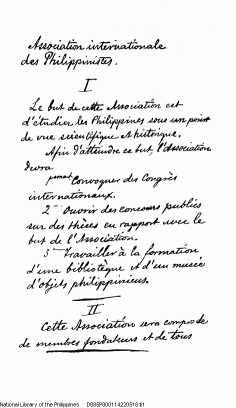 Association internationale
des Philippinistes.
I
Le but de cette Association est
d'étudier les Philippines sous un point
de vue scientifique et historique.
Afin d'atteindre ce but, l'Association
devra
Convoquer des Congrès
internationaux.
2 Ouvrir des concours publics
sur des thèses en rapport avec le
but de l'Association.
3 Travailler à la formation
d'une bibliotèque et d'un musée
d'objets philippiniens.
II
Cette Association sera composée
de membres fondateurs et de tous
National Library of the Philippines